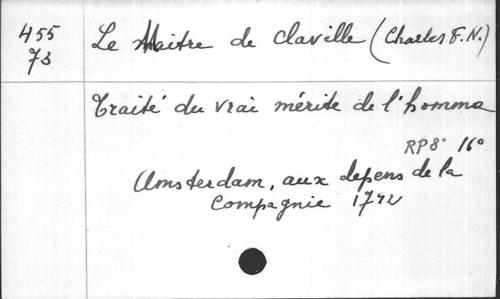 455 Le Maitre de Claville (Charles F.N.)
73
Traité du vrai mérite de l'homme
RP8° 16°
Amsterdam, aux depens de la
Compagnie 1742